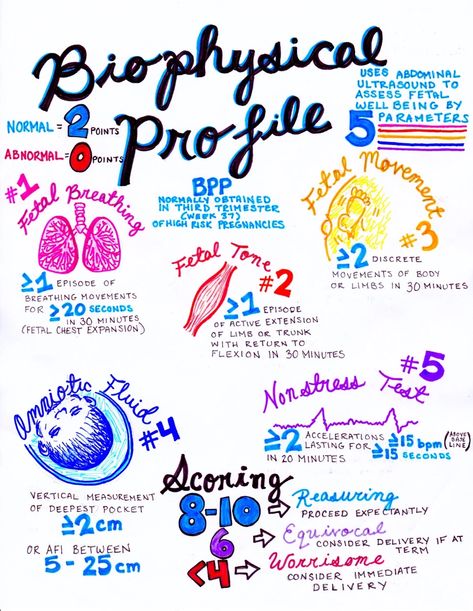 Biophysical
Profile
NORMAL = 2 POINTS
ABNORMAL = 0 POINTS
USES ABDOMINAL
ULTRASOUND TO
ASSESS FETAL
WELL BEING BY
5 PARAMETERS
BPP
NORMALLY OBTAINED
IN THIRD TRIMESTER
(WEEK 37)
OF HIGH RISK PREGNANCIES
#1
Fetal Breathing
≥1 EPISODE OF
BREATHING MOVEMENTS
FOR ≥20 SECONDS
IN 30 MINUTES
(FETAL CHEST EXPANSION)
Fetal Tone
#2
≥1 EPISODE
OF ACTIVE EXTENSION
OF LIMB OR TRUNK
WITH RETURN TO
FLEXION IN 30 MINUTES
Fetal Movement
#3
≥2 DISCRETE
MOVEMENTS OF BODY
OR LIMBS IN 30 MINUTES
Amniotic Fluid
#4
VERTICAL MEASUREMENT
OF DEEPEST POCKET
≥2cm
OR AFI BETWEEN
5-25cm
#5
Nonstress Test
≥2 ACCELERATIONS ≥15 bpm (ABOVE BASE LINE)
LASTING FOR ≥15 SECONDS
IN 20 MINUTES
Scoring
8-10 ⇒ Reasuring
PROCEED EXPECTANTLY
6 ⇒ Equivocal
CONSIDER DELIVERY IF AT
TERM
<4 ⇒ Worrisome
CONSIDER IMMEDIATE
DELIVERY